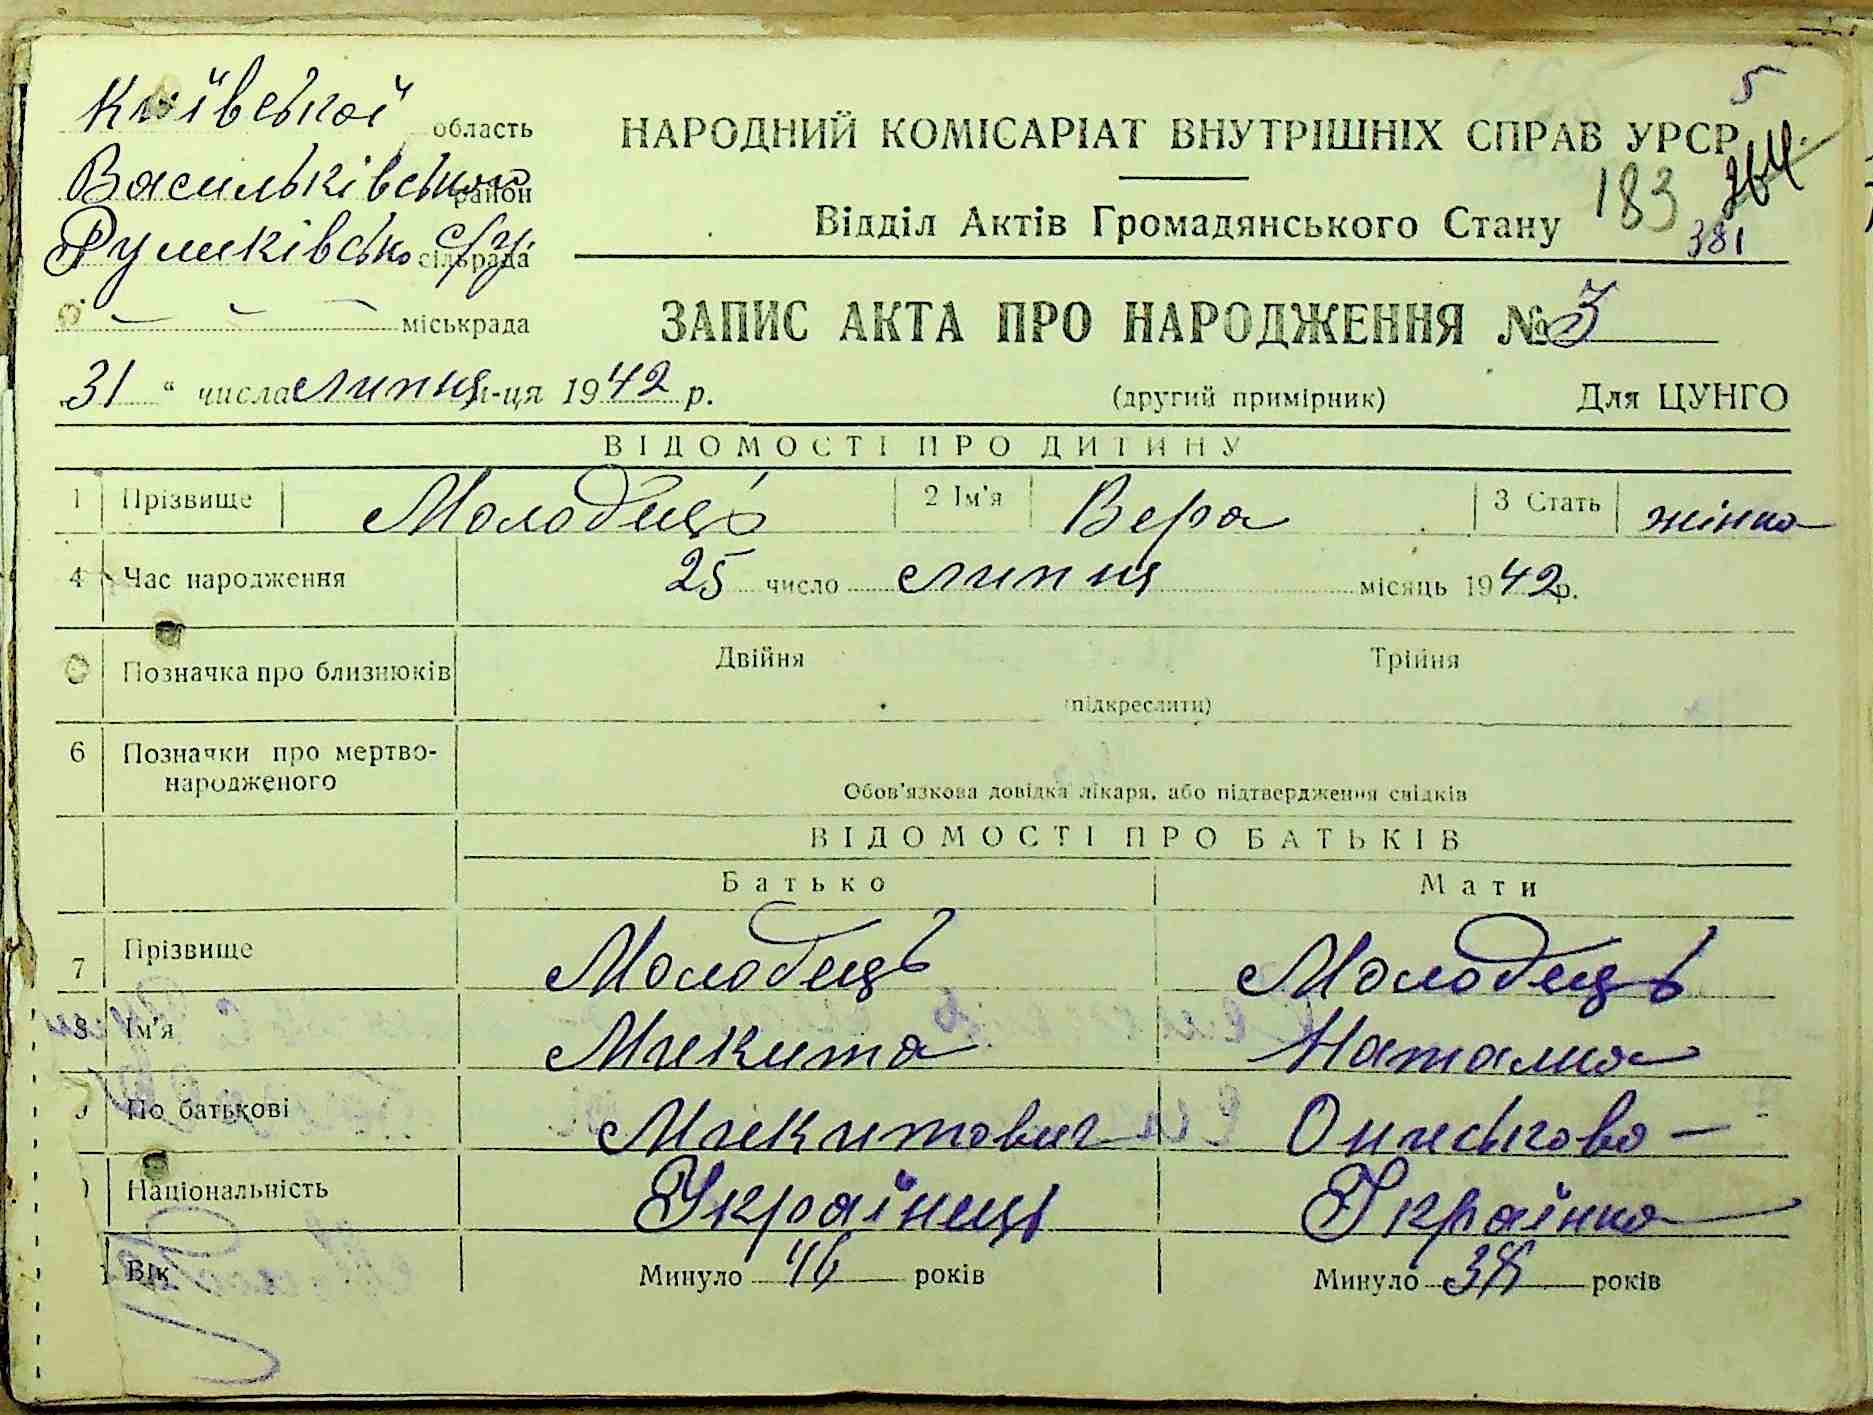 5
Київської область
НАРОДНИЙ КОМІСАРІАТ ВНУТРІШНІХ СПРАВ УРСР
264
Васильківського район
183
Відділ Актів Громадянського Стану
381
сільрада
міськрада
ЗАПИС АКТА ПРО НАРОДЖЕННЯ № 3
„31“ числа липня м-ця 1942 р.
(другий примірник)
Для ЦУНГО
ВІДОМОСТІ ПРО ДИТИНУ
1 Прізвище Молодець 2 Ім'я Вера 3 Стать жінка
4 Час народження 25 число липня місяць 1942р.
Позначка про близнюків Двійня Трійня
(підкреслити)
6 Позначки про мертво-
народженого
Обов'язкова довідка лікаря, або підтвердження свідків
ВІДОМОСТІ ПРО БАТЬКІВ
Батько Мати
7 Прізвище Молодець Молодець
8 Ім'я Микита Наталия
По батькові Микитович
Національність Українець Українка
Вік Минуло 46 років Минуло 38 років